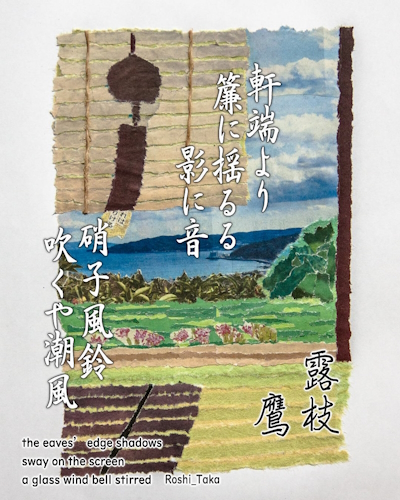 軒端より
簾に揺るる
影に音
硝子風鈴
吹くや潮風
露枝
鷹
the eaves' edge shadows
sway on the screen
a glass wind bell stirred Roshi_Taka